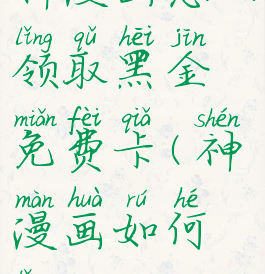 lǐng qǔ hēi jīn
领取黑金
miǎn fèi qiǎ shén
免费卡(神
màn huà rú hé
漫画如何